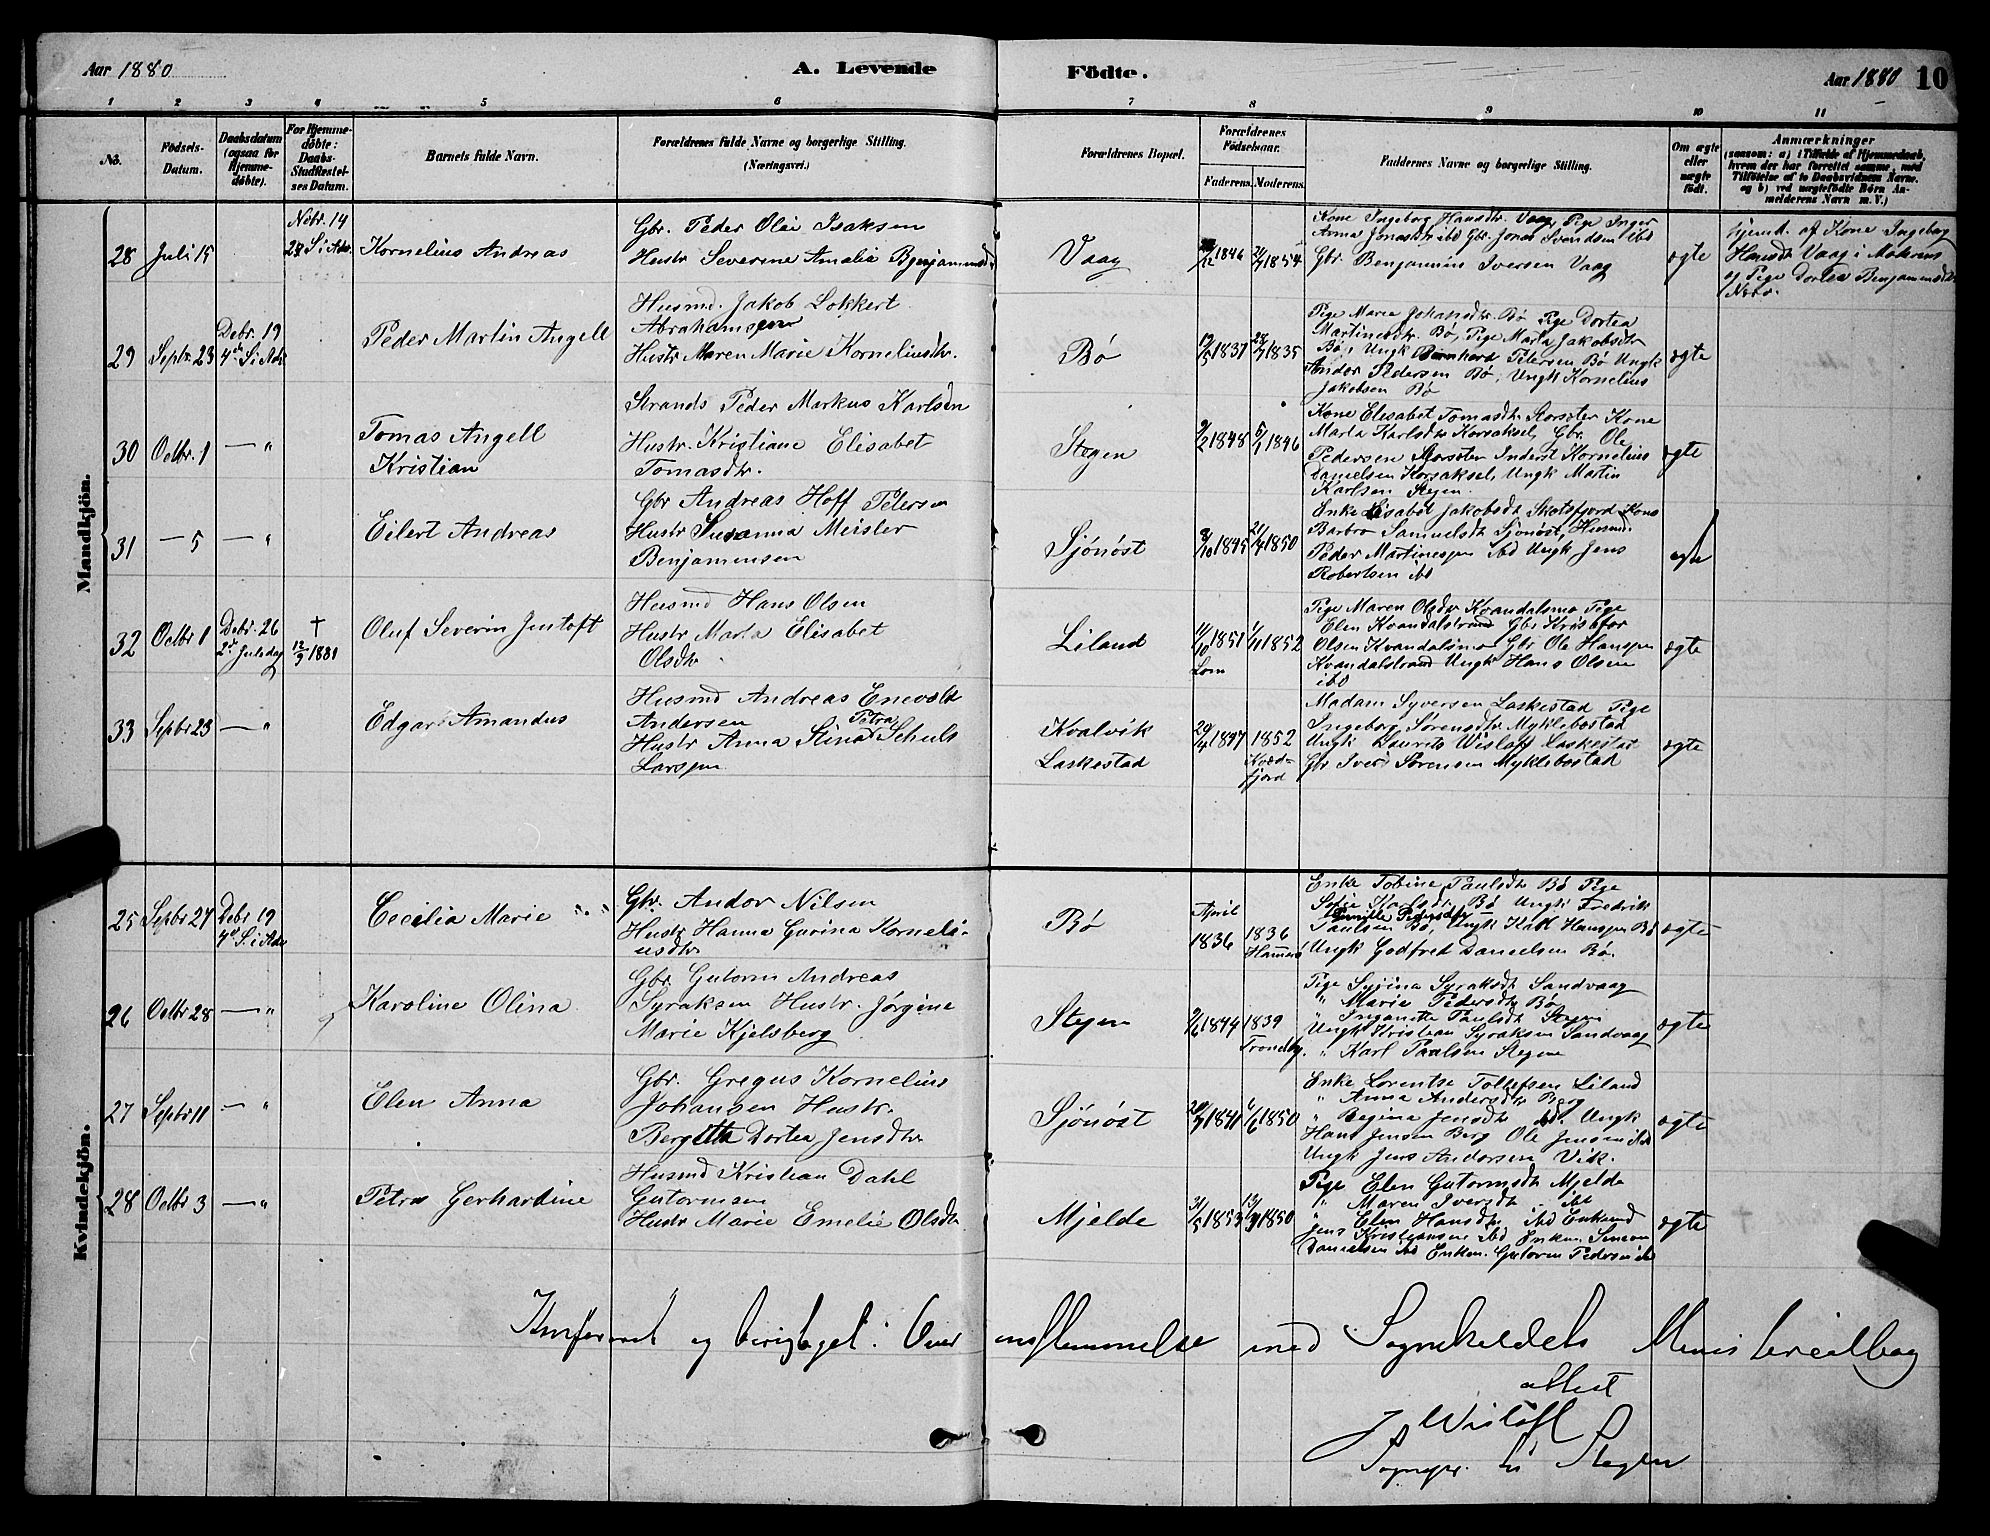 Aar 1880
A. Levende Födte.
Aar 1880 10
1 2 3 4 5 6 7 8 9 10 11
No.
Födsels-
Datum.
Daabsdatum
(ogsaa for
Hjemme-
döbte).
For Hjemme-
döbte:
Daabs-
Stadfæstel-
ses Datum.
Barnets fulde Navn.
Forældrenes fulde Navne og borgerlige Stilling.
(Næringsvei.)
Forældrenes Bopæl.
Forældrenes
Födselsaar.
Faderens. Moderens.
Faddernes Navne og borgerlige Stilling.
Om ægte
eller
uægte
födt.
Anmærkninger
(saasom: a) i Tilfælde af Hjemmedaab,
hvem der har forrettet samme, med
Tilföielse af to Daabsvidners Navne.
og b) ved uægtefödte Börn An-
melderens Navn m. V.)
Mandkjön.
28 Juli 15
Nobr. 14
Kornelius Andreas
Gbr. Peder Olai Isaksen
Hustr Severine Amalia Benjaminsd
Vaag
1846 1854
Kone Ingeborg Hansdtr. Vaag, Pige Inger
Anna Jonasdtr ibd Gbr. Jonas Svendsen ibd
Gbr. Benjamin Iversen Vaag
ægte
hjemd. af Kone Ingeborg
Hansdt Vaag i
og Pige Dortea Benjaminsdt
29 Septr. 23
Debr. 19
4de S. i Adv
Peder Martin Angell
Husmd. Jakob Lokkert
Abrahamsen
Hustr Maren Marie Korneliusdtr.
Bø
1837 1835
Pige Marie Johansdtr. Bø Pige Dortea
Martinusdtr. Bø, Pige Marta Jakobsdtr
Bø, Ungk Bernhard Petersen Bø Ungk
Andor Pedersen Bø, Ungk Kornelius
Jakobsen Bø
ægte
30 Octbr. 1 — "
Tomas Angell
Kristian
Strands Peder Markus Karlsen
Hustr. Kristiane Elisabet
Tomasdtr.
Stegen
9/2 1848 5/7 1846
Kone Elisabet Tomasdtr. Kone
Marta Karlsdtr Korsaksel, Gbr. Ole
Pedersen Inderst Kornelius
Danielsen Korsaksel, Ungk Martin
Karlsen Stegen
ægte
31 — 5 — "
Eilert Andreas
Gbr Andreas Hoff Petersen
Hustr Susanna Meisler
Benjaminsen
Sjönöst
1845 1850
Enke Elisabet Jakobsdt Skotsfjord Kone
Barbro Samuelsdt Sjönöst, Husmd.
Peder Martinessen ibd Ungk Jens
Robertsen ibd
ægte
32 Octbr 1
Debr. 26
2d Juledag
†
12/9 1881
Oluf Severin Jentoft
Husmd Hans Olsen
Hustr Marta Elisabet
Olsdtr.
Liland
11/10 1851
Lom
1852
Pige Maren Olsdtr Kvandalsmo Pige
Elen Kvandalstrand Gbr Kristofer
Olsen Kvandalsmo Gbr Ole Hanssen
Kvandalstrand Ungk Hans Olsen
ibd
ægte
33 Septbr 23 — "
Edgar Amandus
Husmd Andreas Enevold
Andersen
Petra
Hustr Anna Stina Schuls
Larssen
Kvalvik
Laskestad
1847 1852
Kvæd-
fjord
Madam Syversen Laskestad Pige
Ingeborg Sørensdtr. Myklebostad
Ungk Laurits Wisløff Laskestad
Gbr Iver Sørensen Myklebostad
ægte
Kvindekjön.
25 Septbr 27
Debr 19
4de S. i Adv
Cecilia Marie
Gbr. Andor Nilsen
Hustr Hanna Gurina Korneli-
usdtr
Bø
April
1836
1836
Hamerø
Enke Tobine Paulsdtr Bø Pige
Sofie Karlsdtr. Bø Ungk Fredrik
Pernille Pedersdtr
Paulsen Bø, Ungk Hanssen Bø
Ungk Godfred Danielsen Bø.
ægte
26 Octbr 28 — "
Karoline Olina
Gbr. Gutorm Andreas
Syraksen Hustr. Jørgine
Marie Kjelsberg
Stegen
1844 1839
Trondhj.
Pige Syrina Syraksdt Sandvaag
" Marie Pedersdtr Bø
" Inganette Paulsdt Stegen
Ungk Kristian Syraksen Sandvaag
" Karl Paulsen Stegen
ægte
27 Septbr 11 — "
Elen Anna
Gbr. Gregus Kornelius
Johansen Hustr.
Bergitta Dortea Jensdtr
Sjönöst
1841 1850
Enke Lorentse Tollefsen Liland
" Anna Andersdtr Berg
" Regina Jensdtr ibd. Ungk
Hans Jensen Berg Ole Jensen ibd
Ungk Jens Andersen Vik.
ægte
28 Octbr 3 — "
Petra Gerhardine
Husmd Kristian Dahl
Gutormsen
Hustr Marie Emelie Olsdtr
Mjelde
31/5 1853 1850
Pige Elen Gutormsdt Mjelde
" Maren Iversdtr ibd
" Elen Hansdtr ibd Enkemd
Jens Kristiansen ibd Enkem. Simon
Danielsen ibd Enkem. Gutorm Pedersen ibd
ægte
Konfereret og berigtiget i Overensstemmelse med Sognekaldets Ministerialbog
attest
J Wisløff
Sognepr. til Stegen